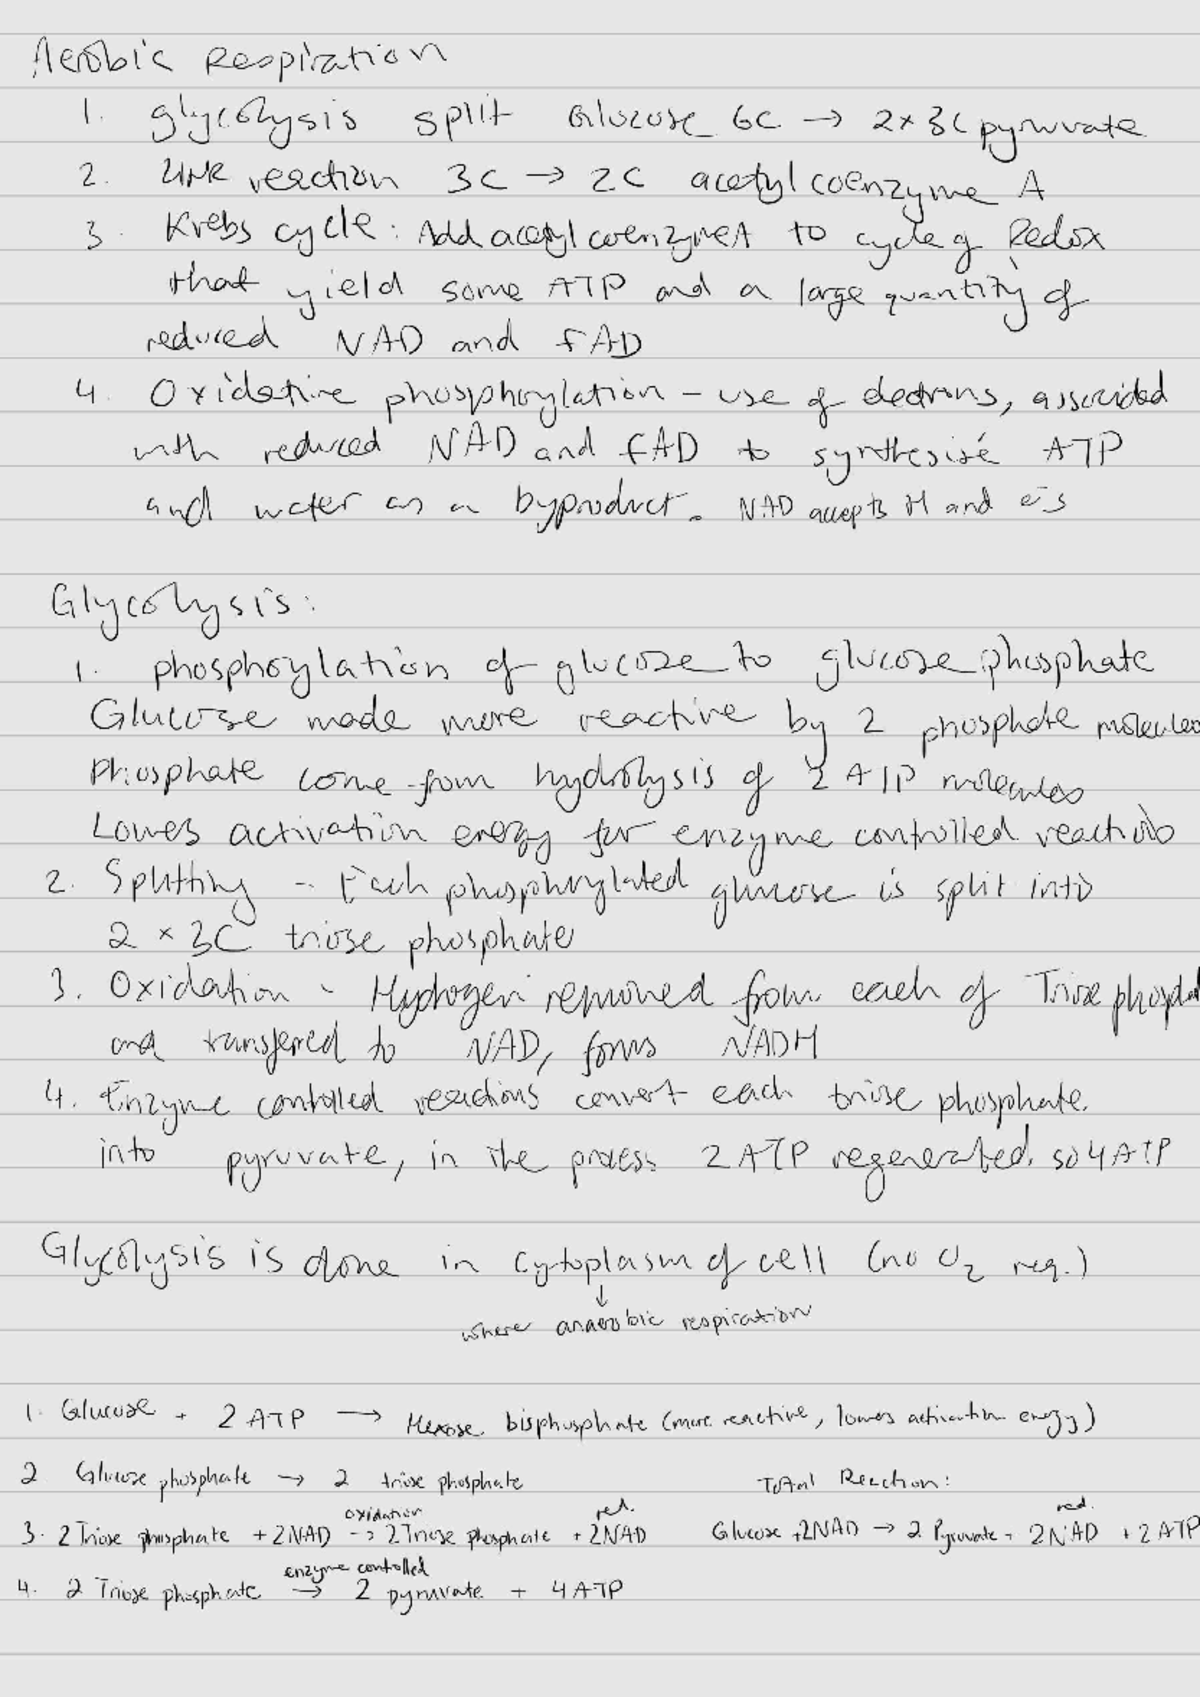 Aerobic Respiration
1. glycolysis split Glucose 6C → 2×3C pyruvate
2. Link reaction 3C → 2C acetylcoenzyme A
3. Krebs cycle: Add acetylcoenzymeA to cycle of Redox
that yield some ATP and a large quantity of
reduced NAD and FAD
4. Oxidative phosphorylation – use of electrons, associated
with reduced NAD and FAD to synthesise ATP
and water as a byproduct. NAD accepts H and e⁻s
Glycolysis:
1. phosphorylation of glucose to glucose phosphate
Glucose made more reactive by 2 phosphate molecules
Phosphate come from hydrolysis of 2 ATP molecules
Lowers activation energy for enzyme controlled reactions
2. Splitting - Each phosphorylated glucose is split into
2 × 3C triose phosphate
3. Oxidation - Hydrogen removed from each of Triose phosphat
and transferred to NAD, forms NADH
4. Enzyme controlled reactions convert each triose phosphate
into pyruvate, in the process 2 ATP regenerated. so 4 ATP
Glycolysis is done in cytoplasm of cell (no O₂ req.)
↓
where anaerobic respiration
1. Glucose + 2 ATP → Hexose bisphosphate (more reactive, lowers activation energy)
2 Glucose phosphate → 2 triose phosphate Total Reaction:
oxidation red. red.
3. 2 Triose phosphate + 2NAD → 2 Triose phosphate + 2NAD Glucose + 2NAD → 2 Pyruvate + 2NAD + 2 ATP
enzyme controlled
4. 2 Triose phosphate → 2 pyruvate + 4 ATP